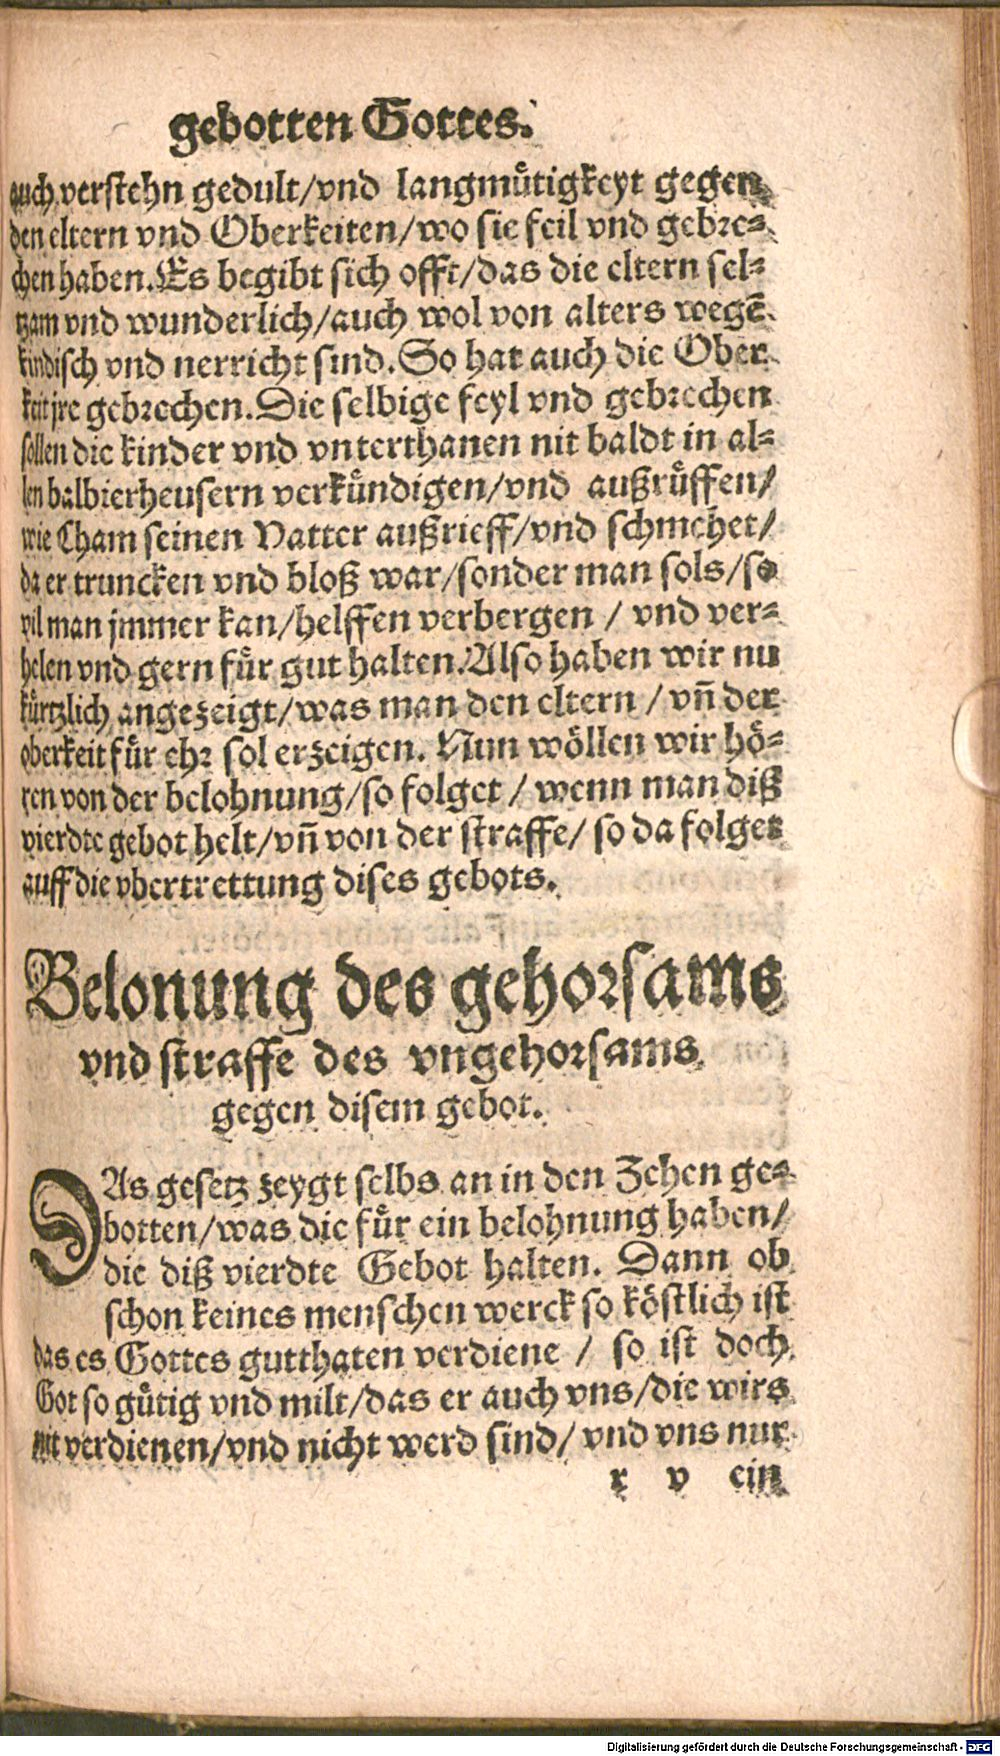 gebotten Gottes.
auch verstehn gedult/vnd langmütigkeyt gegen
den eltern vnd Oberkeiten/wo sie feil vnd gebre-
chen haben. Es begibt sich offt/das die eltern sel-
tzam vnd wunderlich/auch wol von alters wegē
kindisch vnd nerricht sind. So hat auch die Ober
keit jre gebrechen. Die selbige feyl vnd gebrechen
sollen die kinder vnd vnterthanen nit baldt in al-
len balbierheusern verkündigen/vnd außrüffen/
wie Cham seinen Vatter außrieff/vnd schmehet/
da er truncken vnd bloß war/sonder man sols/so
vil man jmmer kan/helffen verbergen / vnd ver-
helen vnd gern für gut halten. Also haben wir nu
kürtzlich angezeigt/was man den eltern / vñ der
oberkeit für ehr sol erzeigen. Nun wöllen wir hö-
ren von der belohnung/so folget / wenn man diß
vierdte gebot helt/vñ von der straffe/ so da folget
auff die vbertrettung dises gebots.
Belonung des gehorsams
vnd straffe des vngehorsams
gegen disem gebot.
DAs gesetz zeygt selbs an in den Zehen ge-
botten/was die für ein belohnung haben/
die diß vierdte Gebot halten. Dann ob
schon keines menschen werck so köstlich ist
das es Gottes gutthaten verdiene / so ist doch
Got so gütig vnd milt/das er auch vns/die wirs
nit verdienen/vnd nicht werd sind/ vnd vns nur
r v ein
Digitalisierung gefördert durch die Deutsche Forschungsgemeinschaft - DFG